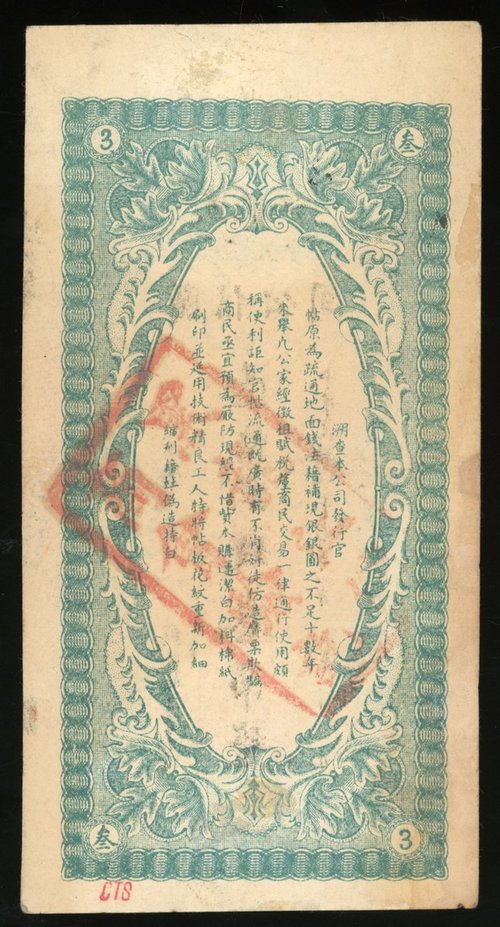 3
叁
溯查本公司發行官
帖原為疏通地面錢法藉補現銀銀圓之不足十數年
來舉凡公家經徵租賦稅釐商民交易一律通行使用頗
稱便利詎知官帖流通既廣時有不肖奸徒仿造贋票欺騙
商民亟宜預為嚴防現經不惜貲本購運潔白加料棉紙
刷印並選用技術精良工人特將帖板花紋重新加細
縮刊藉杜偽造特白
叁
3
CTS